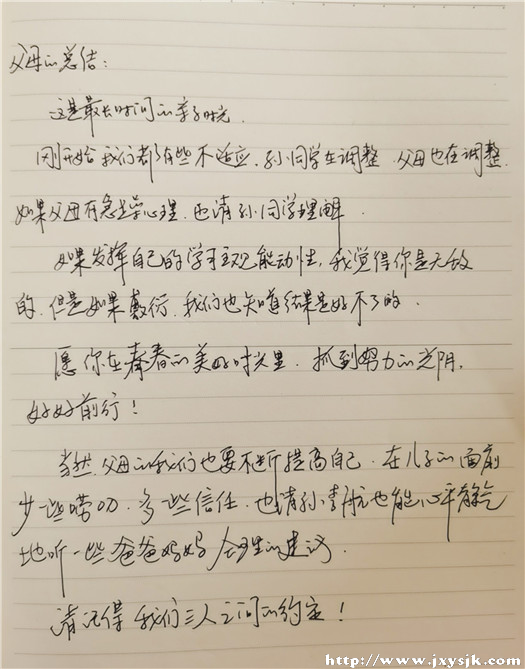 父母的总结:
这是最长时间的亲子时光.
刚开始我们都有些不适应,孙同学在调整.父母也在调整.
如果父母有急学心理,还请孙同学理解.
如果发挥自己的学习主观能动性,我觉得你是无敌
的.但是如果敷衍,我们也知道结果是好不了的.
愿你在青春的美好时光里.抓到努力的光阴,
好好前行!
当然,父母的我们也要不断提高自己.在儿子的面前
少一些唠叨.多一些信任.也请孙青航也能心平静气
地听一些爸爸妈妈合理的建议.
请记得我们三人之间的约定!
http://www.jxysjk.com/